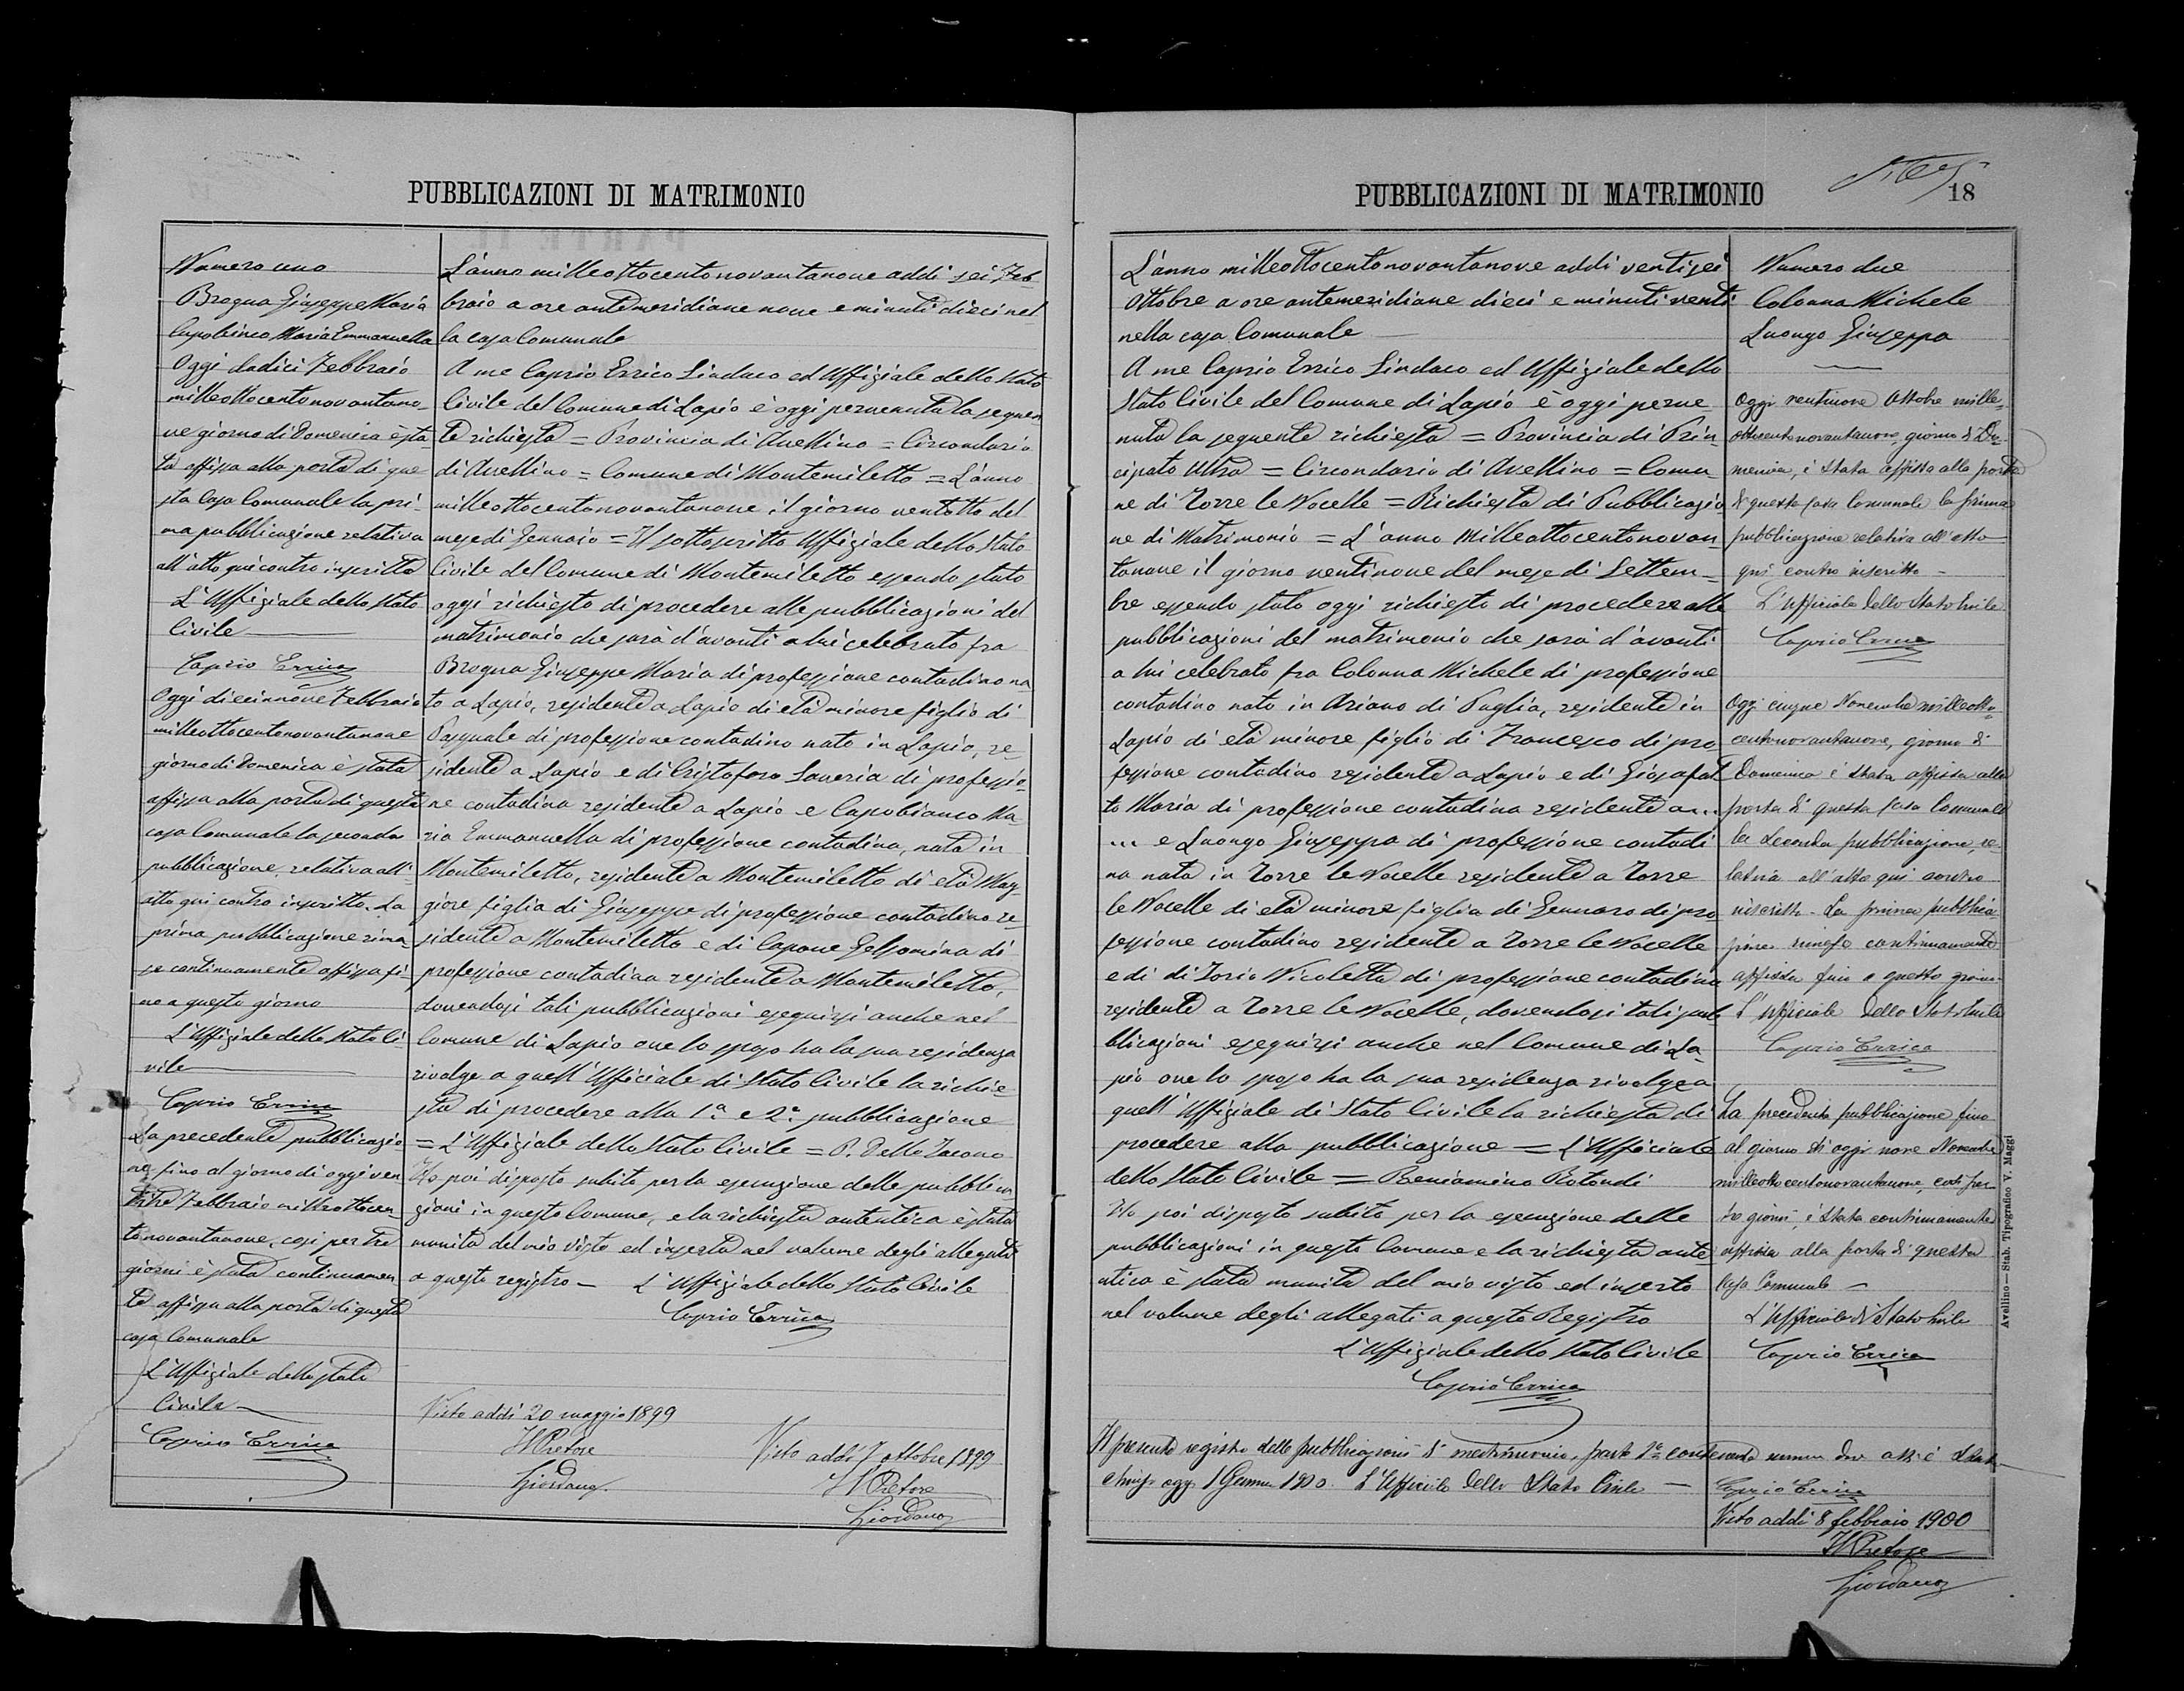 PUBBLICAZIONI DI MATRIMONIO
Numero uno
Brogna Giuseppe Maria
Capobianco Maria Emmanuella
Oggi dodici Febbraio
milleottocentonovantano-
ve giorno di Domenica è sta-
ta affissa alla porta di que
sta Casa Comunale la pri-
ma pubblicazione relativa
all'atto qui contro inscritto
L'Uffiziale dello Stato
Civile
Caprio Errico
Oggi diciannove Febbraio
milleottocentonovantanove
giorno di Domenica è stata
affissa alla porta di questa
casa Comunale la seconda
pubblicazione, relativa all'-
atto qui contro inscritto. La
prima pubblicazione rima
se continuamente affissa fi-
no a questo giorno
L'Uffiziale dello Stato Ci-
vile
Caprio Errico
La precedente pubblicazio-
ne fino al giorno di oggi ven
titre Febbraio milleottocen
tonovantanove, così per tre
giorni è stata continuamen
te affissa alla porta di questa
casa Comunale
L'Uffiziale dello Stato
Civile
Caprio Errico
L'anno milleottocentonovantanove addì sei Feb-
braio a ore antemeridiane nove e minuti dieci nel-
la casa Comunale
A me Caprio Errico Sindaco ed Uffiziale dello Stato
Civile del Comune di Lapio è oggi pervenuta la seguen
te richiesta = Provincia di Avellino = Circondario
di Avellino = Comune di Montemiletto = L'anno
milleottocentonovantanove il giorno ventotto del
mese di Gennaio = Il sottoscritto Uffiziale dello Stato
Civile del Comune di Montemiletto essendo stato
oggi richiesto di procedere alle pubblicazioni del
matrimonio che sarà d'avanti a lui celebrato fra
Brogna Giuseppe Maria di professione contadino na
to a Lapio, residente a Lapio di età minore figlio di
Pasquale di professione contadino nato in Lapio, re-
sidente a Lapio e di Cristofaro Saveria di professio-
ne contadina residente a Lapio e Capobianco Ma-
ria Emmanuella di professione contadina, nata in
Montemiletto, residente a Montemiletto di età Mag
giore figlia di Giuseppe di professione contadino re
sidente a Montemiletto e di Capone Gelsomina di
professione contadina residente a Montemiletto,
dovendosi tali pubblicazioni eseguirsi anche nel
Comune di Lapio ove lo sposo ha la sua residenza
rivolge a quell'Ufficiale di Stato Civile la richie-
sta di procedere alla 1.ª e 2.ª pubblicazione
= L'Uffiziale dello Stato Civile = P. Dello Iacono
Ho poi disposto subito per la esecuzione delle pubblica
zioni in questo Comune, e la richiesta autentica è stata
munita del mio visto ed inserta nel volume degli allegati
a questo registro — L'Uffiziale dello Stato Civile
Caprio Errico
Visto addì 20 maggio 1899
Il Pretore
Giordano
Visto addì 7 ottobre 1899
Il Pretore
Giordano
PUBBLICAZIONI DI MATRIMONIO
18
L'anno milleottocentonovantanove addì ventisei
Ottobre a ore antemeridiane dieci e minuti venti
nella casa Comunale
A me Caprio Errico Sindaco ed Uffiziale dello
Stato Civile del Comune di Lapio è oggi perve
nuta la seguente richiesta = Provincia di Prin-
cipato Ultra = Circondario di Avellino = Comu-
ne di Torre le Nocelle = Richiesta di Pubblicazio
ne di Matrimonio = L'anno Milleottocentonovan-
tanove il giorno ventinove del mese di Settem-
bre essendo stato oggi richiesto di procedere alle
pubblicazioni del matrimonio che sarà d'avanti
a lui celebrato fra Colonna Michele di professione
contadino nato in Ariano di Puglia, residente in
Lapio di età minore figlio di Francesco di pro
fessione contadino residente a Lapio e di Giosafat
to Maria di professione contadina residente a ...
... e Luongo Giuseppa di professione contadi
na nata in Torre le Nocelle residente a Torre
le Nocelle di età minore figlia di Gennaro di pro
fessione contadino residente a Torre le Nocelle
e di di Iorio Nicoletta di professione contadina
residente a Torre le Nocelle, dovendosi tali pub
blicazioni eseguirsi anche nel Comune di La-
pio ove lo sposo ha la sua residenza rivolge a
quell'Uffiziale di Stato Civile la richiesta di
procedere alla pubblicazione = L'Ufficiale
dello Stato Civile = Beniamino Rotondi
Ho poi disposto subito per la esecuzione delle
pubblicazioni in questo Comune e la richiesta aute
ntica è stata munita del mio visto ed inserto
nel volume degli allegati a questo Registro
L'Uffiziale dello Stato Civile
Caprio Errico
Numero due
Colonna Michele
Luongo Giuseppa
Oggi ventinove Ottobre mille-
ottocentonovantanove, giorno di Do-
menica, è stata affissa alla porta
di questa Casa Comunale la prima
pubblicazione relativa all'atto
qui contro inscritto -
L'Ufficiale dello Stato Civile
Caprio Errico
Oggi cinque Novembre milleotto-
centonovantanove, giorno di
Domenica è stata affissa alla
porta di questa Casa Comunale
la seconda pubblicazione, re-
lativa all'atto qui contro
inscritto - La prima pubblica
zione rimase continuamente
affissa fino a questo giorno
L'Ufficiale dello Stato Civile
Caprio Errico
La precedente pubblicazione fino
al giorno di oggi nove Novembre
milleottocentonovantanove, così per
tre giorni, è stata continuamente
affissa alla porta di questa
Casa Comunale -
L'Ufficiale di Stato Civile
Caprio Errico
Il presente registro delle pubblicazioni di matrimonio, parte 2ª contenente numero due atti è stato
chiuso oggi 1 Gennaio 1900. L'Ufficiale dello Stato Civile —
Caprio Errico
Visto addì 8 febbraio 1900
Il Pretore
Giordano
Avellino — Stab. Tipografico V. Maggi